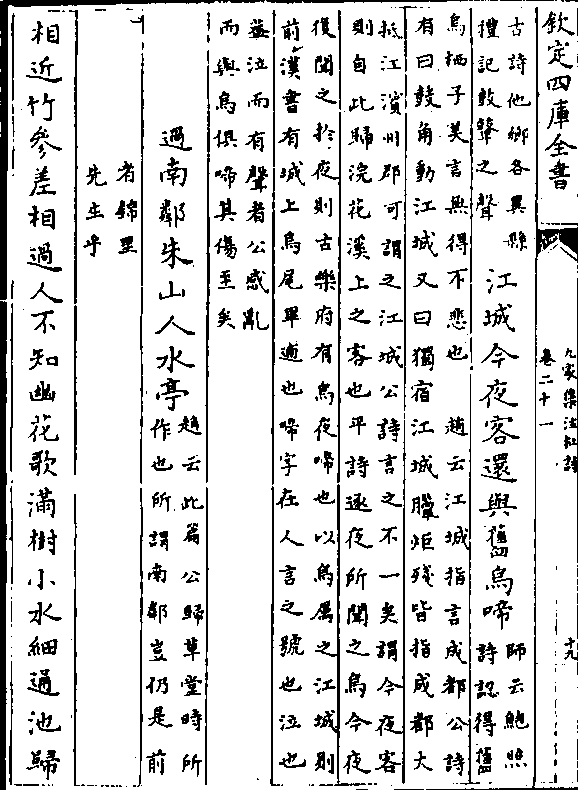 欽定四庫全書
九家集注杜詩
卷二十一
十九
古詩他鄉各異縣
禮記鼓鼙之聲
江城今夜客還與舊烏啼
師云鮑照
詩認得舊
烏栖子美言無得不悲也 趙云江城指言成都公詩
有曰鼓角動江城又曰獨宿江城臘炬殘皆指成都大
抵江濱州郡可謂之江城公詩言之不一矣謂今夜客
則自此歸浣花溪上之客也平詩逐夜所聞之烏今夜
復聞之於夜則古樂府有烏夜啼也以烏屬之江城則
前漢書有城上烏尾畢逋也啼字在人言之號也泣也
蓋泣而有聲者公感亂
而與烏俱啼其傷至矣
過南鄰朱山人水亭
趙云此篇公歸草堂時所
作也所謂南鄰豈仍是前
者錦里
先生乎
相近竹參差相過人不知幽花歌滿樹小水細通池歸